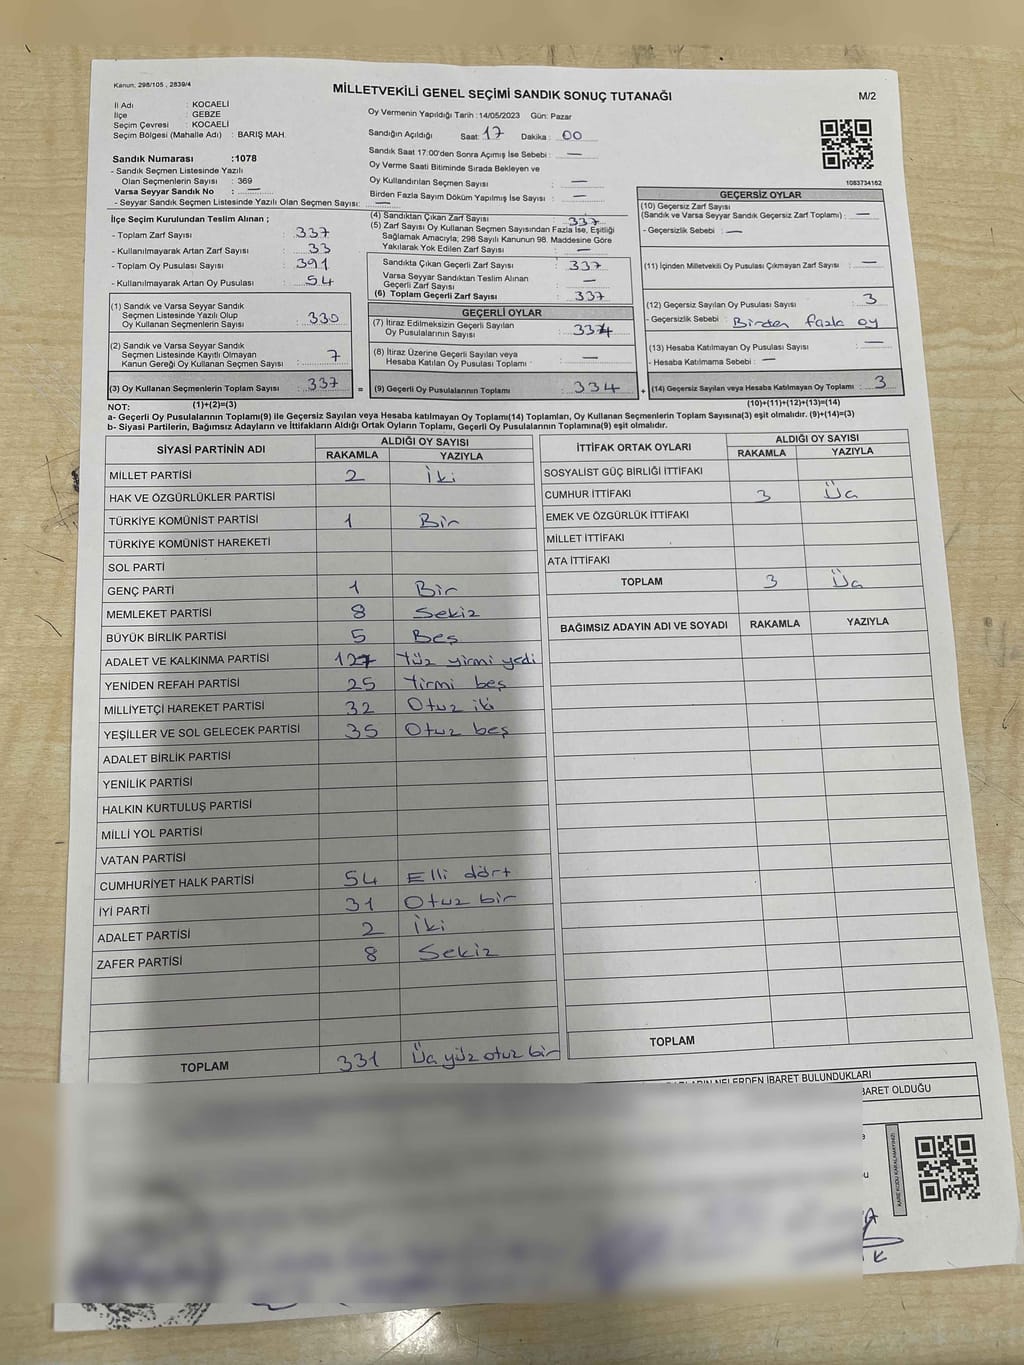 Kanun: 298/105 , 2839/4
MİLLETVEKİLİ GENEL SEÇİMİ SANDIK SONUÇ TUTANAĞI
M/2
İl Adı : KOCAELİ
İlçe : GEBZE
Seçim Çevresi : KOCAELİ
Seçim Bölgesi (Mahalle Adı) : BARIŞ MAH.
Sandık Numarası :1078
- Sandık Seçmen Listesinde Yazılı
Olan Seçmenlerin Sayısı : 369
Varsa Seyyar Sandık No : —
- Seyyar Sandık Seçmen Listesinde Yazılı Olan Seçmen Sayısı: —
Oy Vermenin Yapıldığı Tarih :14/05/2023 Gün: Pazar
Sandığın Açıldığı Saat: 17 Dakika : 00
Sandık Saat 17:00'den Sonra Açımış İse Sebebi : —
Oy Verme Saati Bitiminde Sırada Bekleyen ve
Oy Kullandırılan Seçmen Sayısı : —
Birden Fazla Sayım Döküm Yapılmış İse Sayısı : —
1083734162
İlçe Seçim Kurulundan Teslim Alınan ;
- Toplam Zarf Sayısı : 337
- Kullanılmayarak Artan Zarf Sayısı : 33
- Toplam Oy Pusulası Sayısı : 391
- Kullanılmayarak Artan Oy Pusulası : 54
(1) Sandık ve Varsa Seyyar Sandık
Seçmen Listesinde Yazılı Olup
Oy Kullanan Seçmenlerin Sayısı : 330
(2) Sandık ve Varsa Seyyar Sandık
Seçmen Listesinde Kayıtlı Olmayan
Kanun Gereği Oy Kullanan Seçmen Sayısı : 7
(3) Oy Kullanan Seçmenlerin Toplam Sayısı : 337 =
(1)+(2)=(3)
(4) Sandıktan Çıkan Zarf Sayısı : 337
(5) Zarf Sayısı Oy Kullanan Seçmen Sayısından Fazla İse, Eşitliği
Sağlamak Amacıyla; 298 Sayılı Kanunun 98. Maddesine Göre
Yakılarak Yok Edilen Zarf Sayısı : —
Sandıkta Çıkan Geçerli Zarf Sayısı : 337
Varsa Seyyar Sandıktan Teslim Alınan
Geçerli Zarf Sayısı : —
(6) Toplam Geçerli Zarf Sayısı : 337
GEÇERLİ OYLAR
(7) İtiraz Edilmeksizin Geçerli Sayılan
Oy Pusulasının Sayısı : 334
(8) İtiraz Üzerine Geçerli Sayılan veya
Hesaba Katılan Oy Pusulası Toplamı : —
(9) Geçerli Oy Pusulalarının Toplamı : 334 +
GEÇERSİZ OYLAR
(10) Geçersiz Zarf Sayısı
(Sandık ve Varsa Seyyar Sandık Geçersiz Zarf Toplamı) : —
- Geçersizlik Sebebi : —
(11) İçinden Milletvekili Oy Pusulası Çıkmayan Zarf Sayısı : —
(12) Geçersiz Sayılan Oy Pusulası Sayısı : 3
- Geçersizlik Sebebi : Birden fazla oy
(13) Hesaba Katılmayan Oy Pusulası Sayısı : —
- Hesaba Katılmama Sebebi : —
(14) Geçersiz Sayılan veya Hesaba Katılmayan Oy Toplamı : 3
(10)+(11)+(12)+(13)=(14)
NOT:
a- Geçerli Oy Pusulalarının Toplamı(9) ile Geçersiz Sayılan veya Hesaba katılmayan Oy Toplamı(14) Toplamları, Oy Kullanan Seçmenlerin Toplam Sayısına(3) eşit olmalıdır. (9)+(14)=(3)
b- Siyasi Partilerin, Bağımsız Adayların ve İttifakların Aldığı Ortak Oyların Toplamı, Geçerli Oy Pusulalarının Toplamına(9) eşit olmalıdır.
SİYASİ PARTİNİN ADI ALDIĞI OY SAYISI
RAKAMLA YAZIYLA
MİLLET PARTİSİ 2 İki
HAK VE ÖZGÜRLÜKLER PARTİSİ
TÜRKİYE KOMÜNİST PARTİSİ 1 Bir
TÜRKİYE KOMÜNİST HAREKETİ
SOL PARTİ
GENÇ PARTİ 1 Bir
MEMLEKET PARTİSİ 8 Sekiz
BÜYÜK BİRLİK PARTİSİ 5 Beş
ADALET VE KALKINMA PARTİSİ 127 Yüz yirmi yedi
YENİDEN REFAH PARTİSİ 25 Yirmi beş
MİLLİYETÇİ HAREKET PARTİSİ 32 Otuz iki
YEŞİLLER VE SOL GELECEK PARTİSİ 35 Otuz beş
ADALET BİRLİK PARTİSİ
YENİLİK PARTİSİ
HALKIN KURTULUŞ PARTİSİ
MİLLİ YOL PARTİSİ
VATAN PARTİSİ
CUMHURİYET HALK PARTİSİ 54 Elli dört
İYİ PARTİ 31 Otuz bir
ADALET PARTİSİ 2 İki
ZAFER PARTİSİ 8 Sekiz
TOPLAM 331 Üç yüz otuz bir
İTTİFAK ORTAK OYLARI ALDIĞI OY SAYISI
RAKAMLA YAZIYLA
SOSYALİST GÜÇ BİRLİĞİ İTTİFAKI
CUMHUR İTTİFAKI 3 Üç
EMEK VE ÖZGÜRLÜK İTTİFAKI
MİLLET İTTİFAKI
ATA İTTİFAKI
TOPLAM 3 Üç
BAĞIMSIZ ADAYIN ADI VE SOYADI RAKAMLA YAZIYLA
TOPLAM
NELERDEN İBARET BULUNDUKLARI
BARET OLDUĞU
KARE KODU KARALAMAYINIZ!